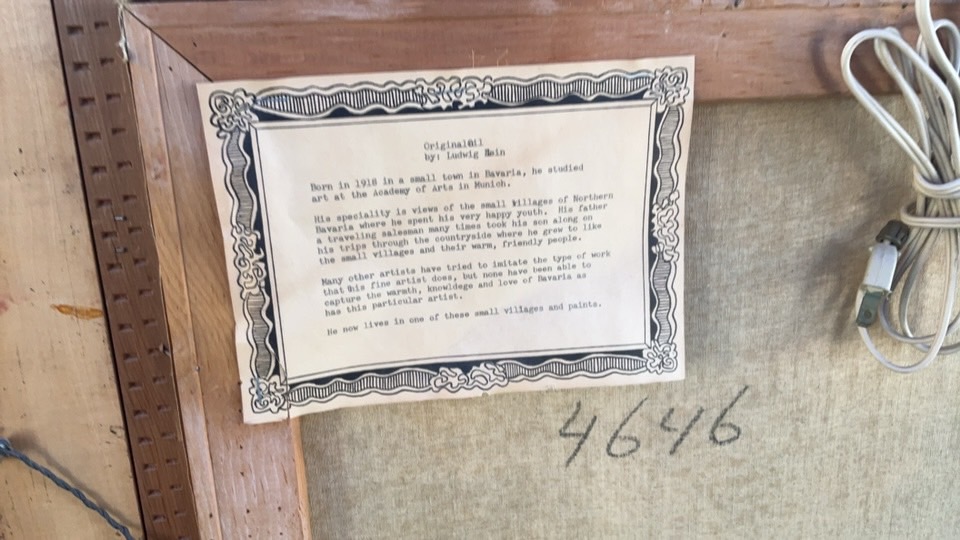 Original Oil
by: Ludwig Hein
Born in 1918 in a small town in Bavaria, he studied
art at the Academy of Arts in Munich.
His speciality is views of the small villages of Northern
Bavaria where he spent his very happy youth. His father
a traveling salesman many times took his son along on
his trips through the countryside where he grew to like
the small villages and their warm, friendly people.
Many other artists have tried to imitate the type of work
that this fine artist does, but none have been able to
capture the warmth, knowldege and love of Bavaria as
has this particular artist.
He now lives in one of these small villages and paints.
4646